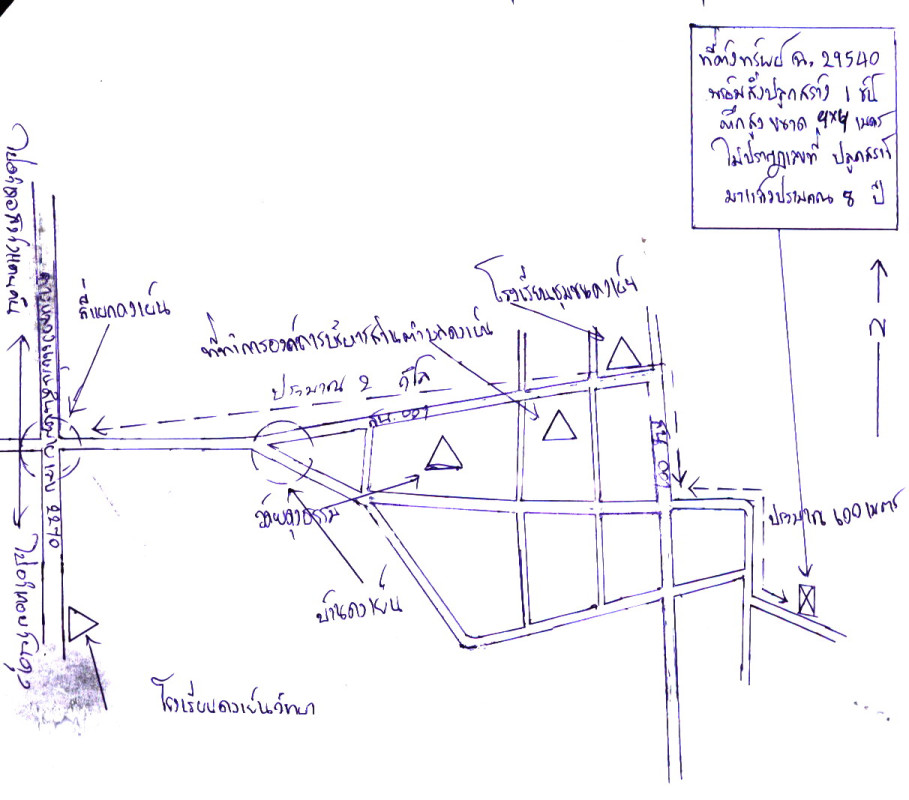 ที่ตั้งทรัพย์ ฉ. 29540
พร้อมสิ่งปลูกสร้าง 1 ชั้น
ตึกสูง ขนาด 4×4 เมตร
ไม่ปรากฏเลขที่ ปลูกสร้าง
มาแล้วประมาณ 8 ปี
โรงเรียนชุมชนดงเย็น
ที่ทำการองค์การบริหารส่วนตำบลดงเย็น
สี่แยกดงเย็น
ประมาณ 2 กิโล
ถน. 001
ถน 001
N
ไปอำเภอสว่างแดนดิน
ทางหลวงแผ่นดินหมายเลข 2270
ไปอำเภอบ้านดุง
ประมาณ 600 เมตร
บ้านดงเย็น
โรงเรียนดงเย็นวิทยา